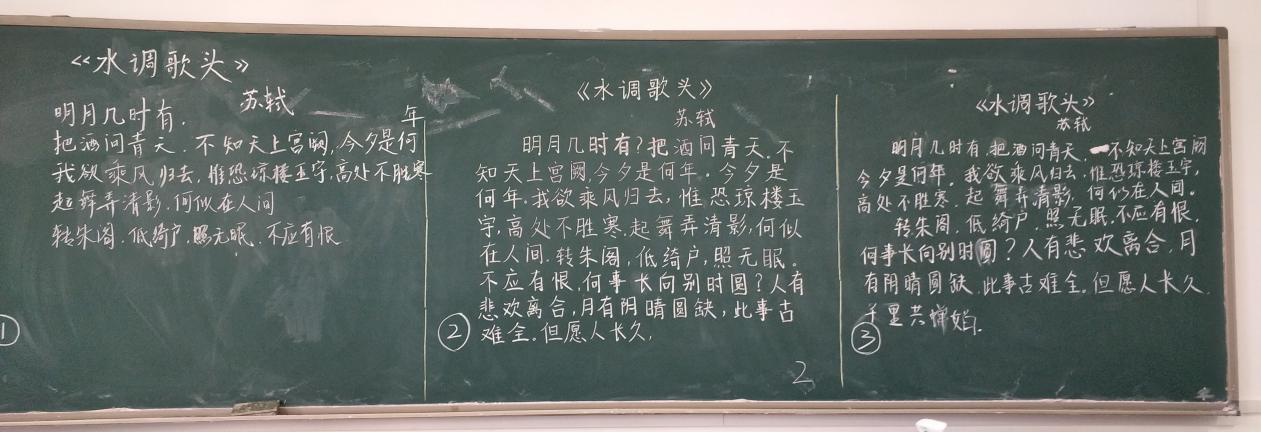 《水调歌头》
苏轼
明月几时有.
把酒问青天.不知天上宫阙,今夕是何年
我欲乘风归去.惟恐琼楼玉宇,高处不胜寒
起舞弄清影.何似在人间
转朱阁.低绮户.照无眠.不应有恨
①
《水调歌头》
苏轼
明月几时有?把酒问青天.不
知天上宫阙,今夕是何年.今夕是
何年.我欲乘风归去,惟恐琼楼玉
宇,高处不胜寒.起舞弄清影,何似
在人间.转朱阁,低绮户,照无眠。
不应有恨.何事长向别时圆?人有
悲欢离合,月有阴晴圆缺,此事古
难全.但愿人长久,
②
2
《水调歌头》
苏轼
明月几时有.把酒问青天,不知天上宫阙
今夕是何年.我欲乘风归去.惟恐琼楼玉宇,
高处不胜寒.起舞弄清影,何似在人间。
转朱阁.低绮户.照无眠.不应有恨.
何事长向别时圆?人有悲欢离合,月
有阴晴圆缺.此事古难全.但愿人长久.
千里共婵娟.
③